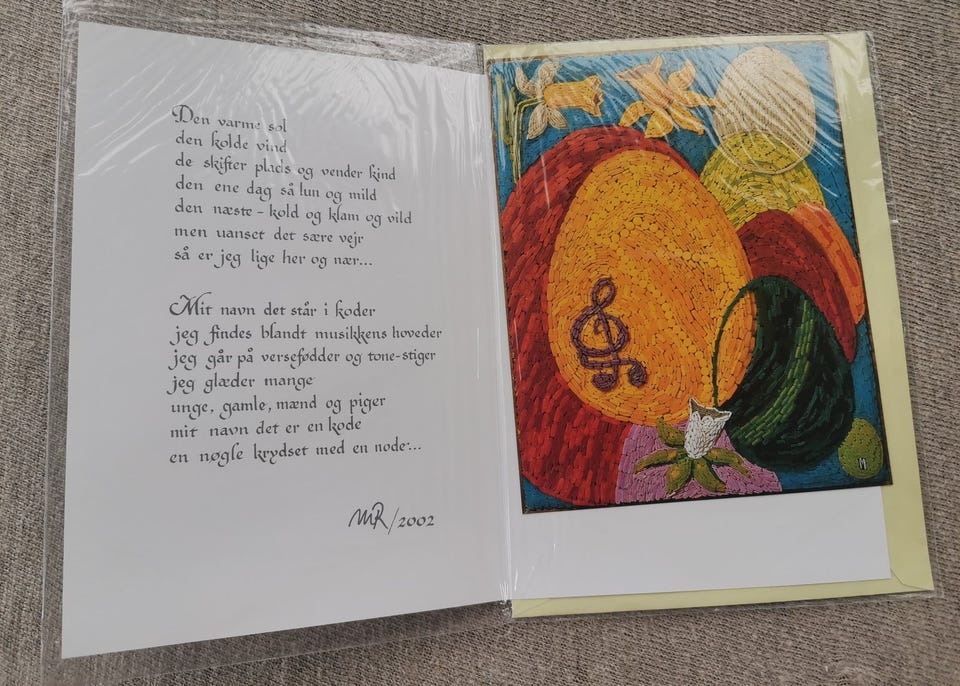 Den varme sol
den kolde vind
de skifter plads og vender kind
den ene dag så lun og mild
den næste - kold og klam og vild
men uanset det sære vejr
så er jeg lige her og nær...
Mit navn det står i koder
jeg findes blandt musikkens hoveder
jeg går på versefødder og tone-stiger
jeg glæder mange
unge, gamle, mænd og piger
mit navn det er en kode
en nøgle krydset med en node...
MR/2002
M